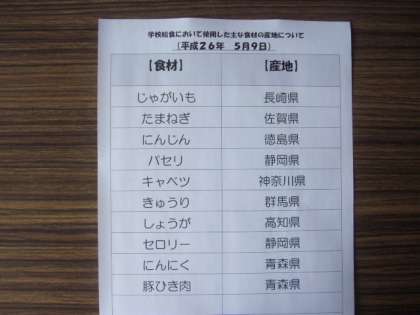 学校給食において使用した主な食材の産地について
（平成２６年　５月９日）
【食材】　【産地】
じゃがいも　長崎県
たまねぎ　佐賀県
にんじん　徳島県
パセリ　静岡県
キャベツ　神奈川県
きゅうり　群馬県
しょうが　高知県
セロリー　静岡県
にんにく　青森県
豚ひき肉　青森県